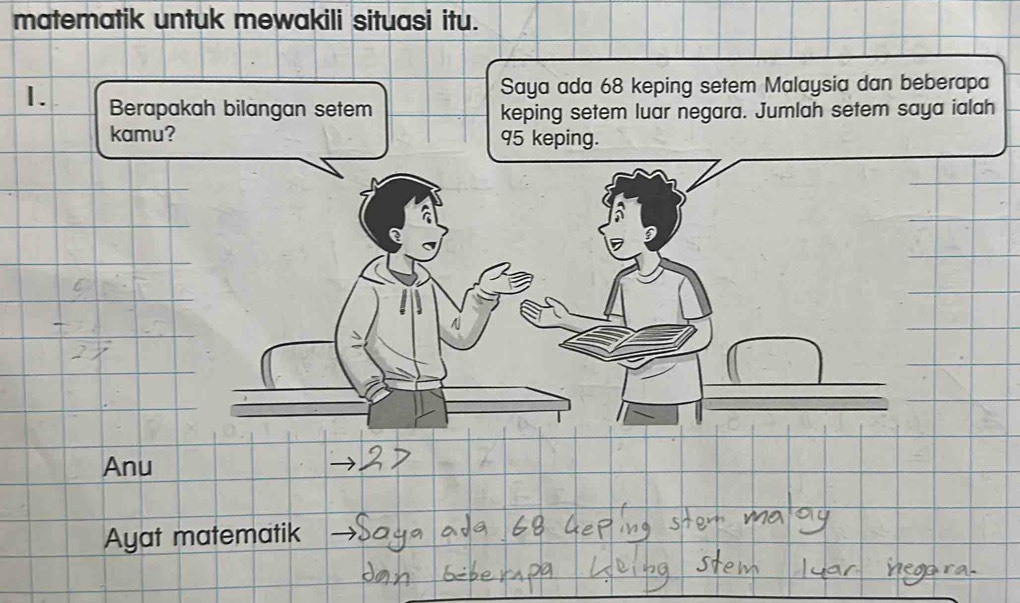 matematik untuk mewakili situasi itu.
1.
Berapakah bilangan setem
kamu?
Saya ada 68 keping setem Malaysia dan beberapa
keping setem luar negara. Jumlah setem saya ialah
95 keping.
27
Anu → 27
Ayat matematik → Saya ada 68 keping stem malay
dan beberapa keing stem luar negara.